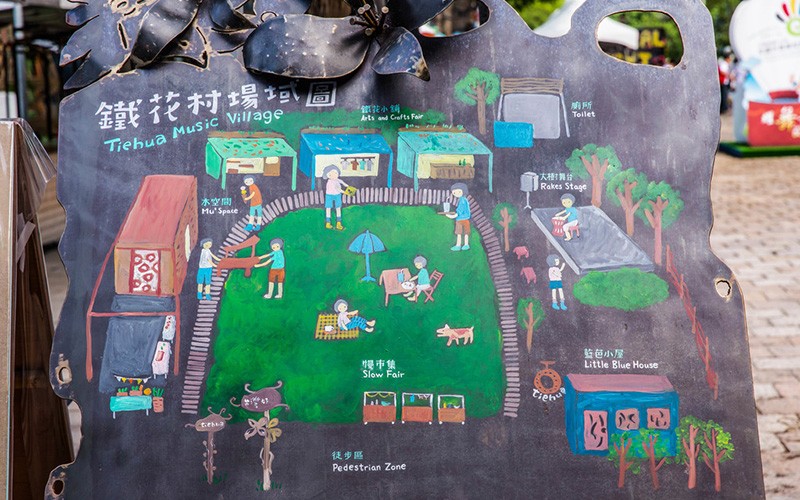 鐵花村場域圖
Tiehua Music Village
鐵花小舖
Arts and Crafts Fair
廁所
Toilet
木空間
Mu' Space
Rakes Stage
慢市集
Slow Fair
藍色小屋
Little Blue House
Tiehua
Tiehua
徒步區
Pedestrian Zone